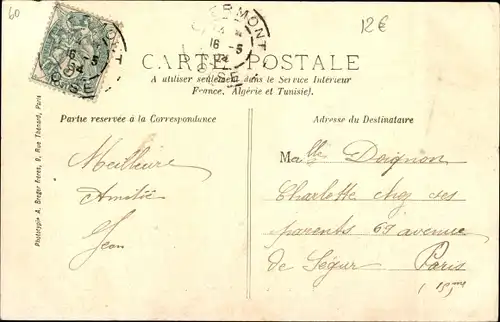 60
12€
ERMONT
16-5
OISE
CARTE POSTALE
A utiliser seulement dans le Service Intérieur
France, Algérie et Tunisie).
Partie reservée à la Correspondance
Adresse du Destinataire
Meilleure
Amitié
Jean
Melle Doignon
Charlotte chez ses
parents 69 avenue
de Ségur Paris
(15me
Phototypie A. Breger Frères, 9, Rue Thénard, Paris